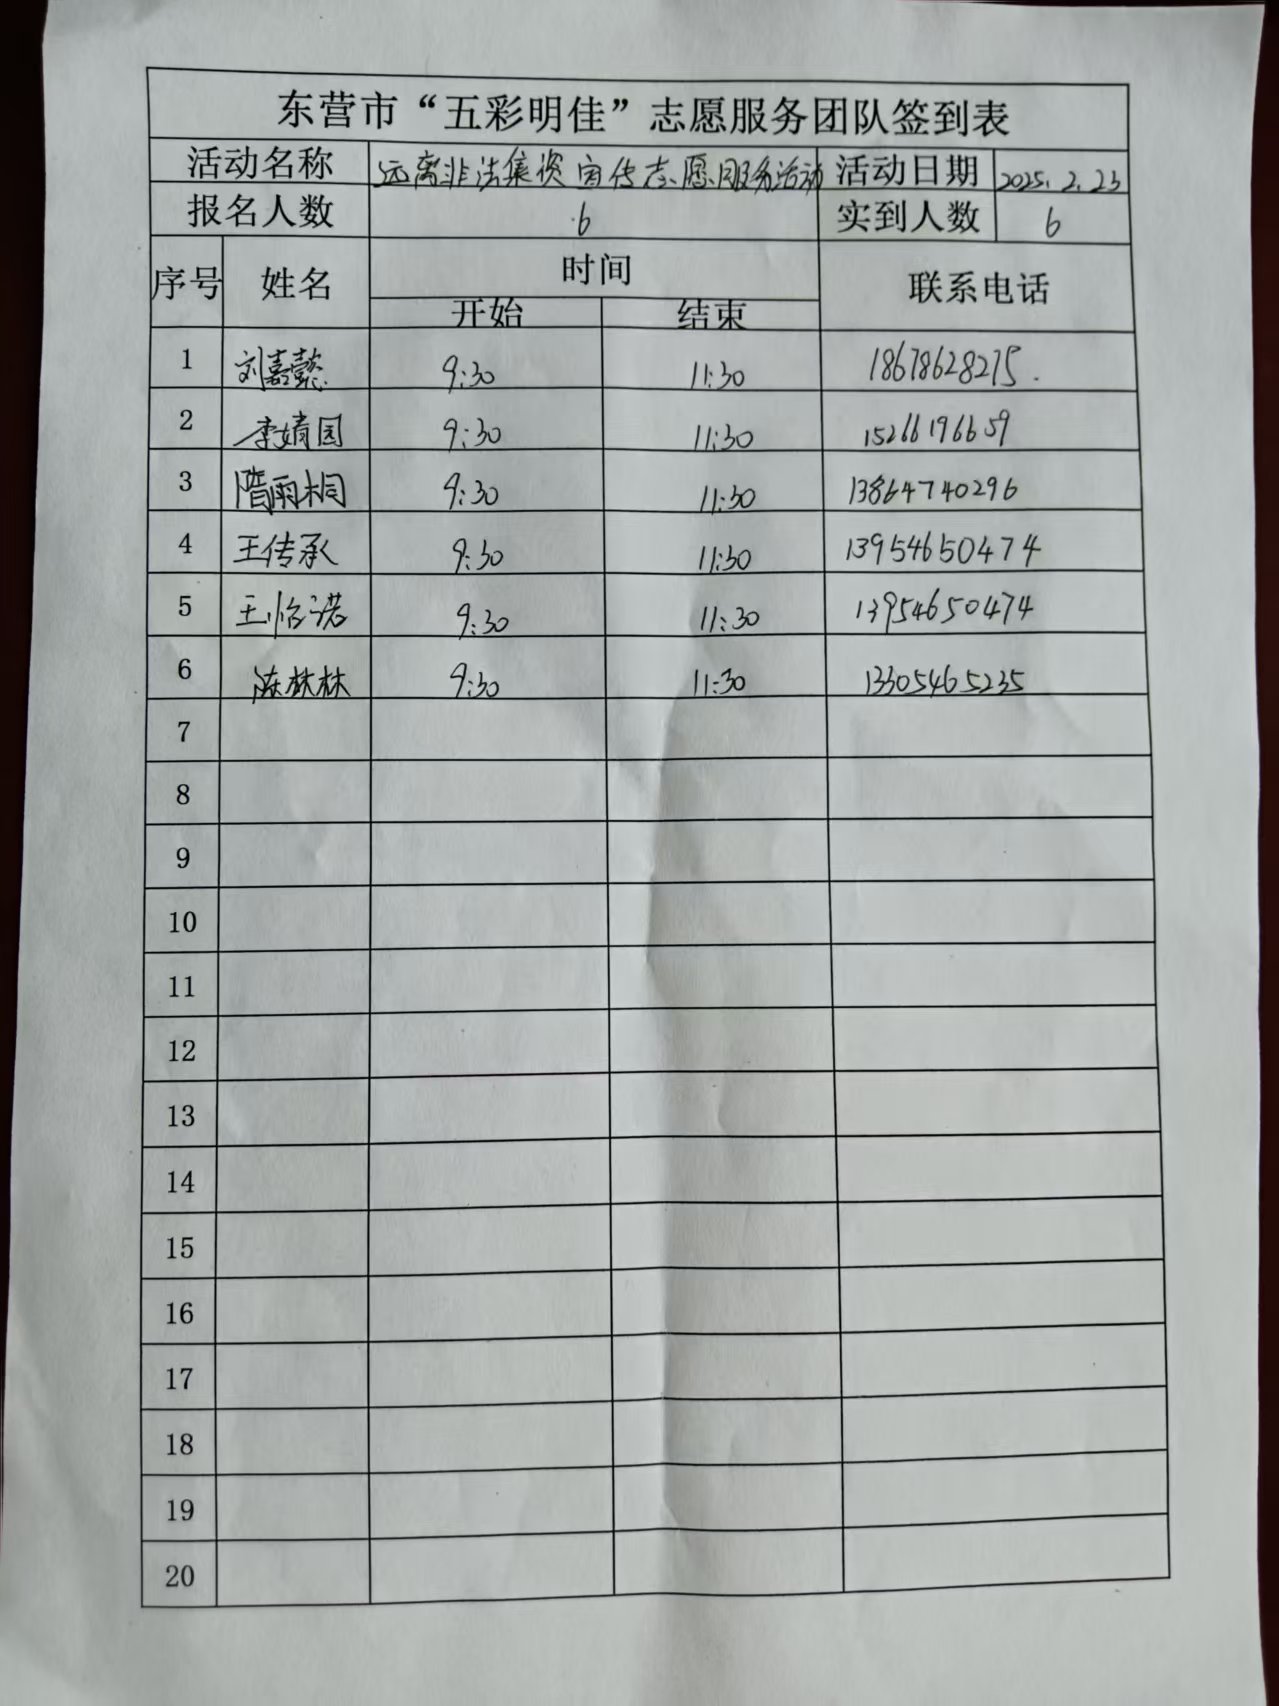 东营市“五彩明佳”志愿服务团队签到表
活动名称 远离非法集资宣传志愿服务活动 活动日期 2025.2.23
报名人数 6 实到人数 6
序号 姓名 时间 联系电话
开始 结束
1 刘嘉懿 9:30 11:30 18678628275.
2 李婧园 9:30 11:30 15266196659
3 隋雨桐 9:30 11:30 13864740296
4 王传承 9:30 11:30 13954650474
5 王怡诺 9:30 11:30 13954650474
6 陈林林 9:30 11:30 13305465235
7
8
9
10
11
12
13
14
15
16
17
18
19
20